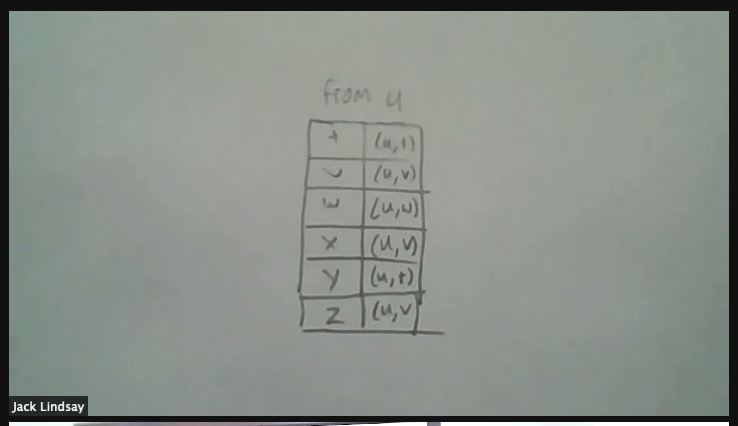 from u
t (u,t)
v (u,v)
w (u,w)
x (u,v)
y (u,t)
z (u,v
Jack Lindsay